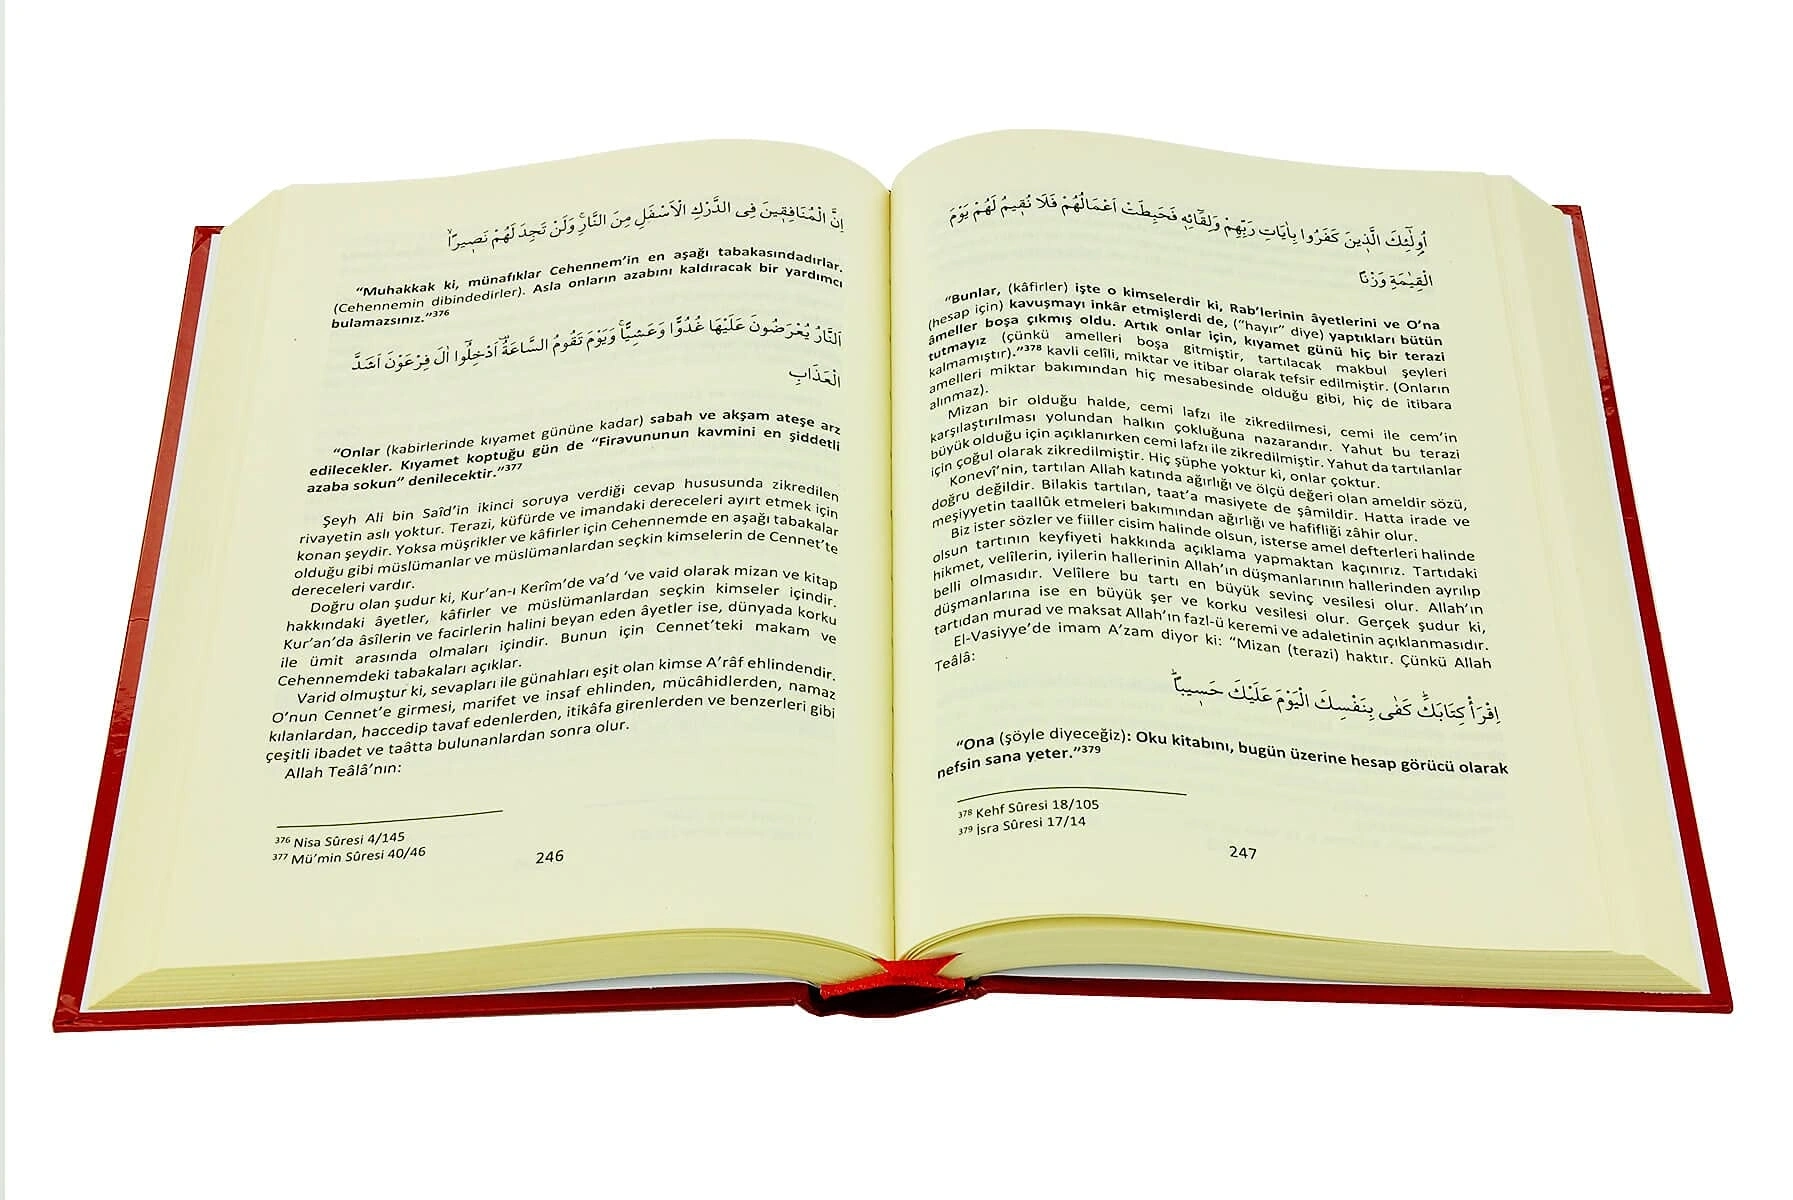 اِنَّ الْمُنَافِقٖينَ فِى الدَّرْكِ الْاَسْفَلِ مِنَ النَّارِۚ وَلَنْ تَجِدَ لَهُمْ نَصٖيرًاۙ
“Muhakkak ki, münafıklar Cehennem’in en aşağı tabakasındadırlar.
(Cehennemin dibindedirler). Asla onların azabını kaldıracak bir yardımcı
bulamazsınız.”376
اَلنَّارُ يُعْرَضُونَ عَلَيْهَا غُدُوًّا وَعَشِيًّاۚ وَيَوْمَ تَقُومُ السَّاعَةُ۠ اَدْخِلُٓوا اٰلَ فِرْعَوْنَ اَشَدَّ
الْعَذَابِ
“Onlar (kabirlerinde kıyamet gününe kadar) sabah ve akşam ateşe arz
edilecekler. Kıyamet koptuğu gün de “Firavununun kavmini en şiddetli
azaba sokun” denilecektir.”377
Şeyh Ali bin Saîd’in ikinci soruya verdiği cevap hususunda zikredilen
rivayetin aslı yoktur. Terazi, küfürde ve imandaki dereceleri ayırt etmek için
konan şeydir. Yoksa müşrikler ve kâfirler için Cehennemde en aşağı tabakalar
olduğu gibi müslümanlar ve müslümanlardan seçkin kimselerin de Cennet’te
dereceleri vardır.
Doğru olan şudur ki, Kur’an-ı Kerîm’de va’d ‘ve vaid olarak mizan ve kitap
hakkındaki âyetler, kâfirler ve müslümanlardan seçkin kimseler içindir.
Kur’an’da âsîlerin ve facirlerin halini beyan eden âyetler ise, dünyada korku
ile ümit arasında olmaları içindir. Bunun için Cennet’teki makam ve
Cehennemdeki tabakaları açıklar.
Varid olmuştur ki, sevapları ile günahları eşit olan kimse A’râf ehlindendir.
O’nun Cennet’e girmesi, marifet ve insaf ehlinden, mücâhidlerden, namaz
kılanlardan, haccedip tavaf edenlerden, itikâfa girenlerden ve benzerleri gibi
çeşitli ibadet ve taâtta bulunanlardan sonra olur.
Allah Teâlâ’nın:
376 Nisa Sûresi 4/145
377 Mü’min Sûresi 40/46
246
اُو۬لٰٓئِكَ الَّذٖينَ كَفَرُوا بِاٰيَاتِ رَبِّهِمْ وَلِقَٓائِهٖ فَحَبِطَتْ اَعْمَالُهُمْ فَلَا نُقٖيمُ لَهُمْ يَوْمَ
الْقِيٰمَةِ وَزْنًا
“Bunlar, (kâfirler) işte o kimselerdir ki, Rab’lerinin âyetlerini ve O’na
(hesap için) kavuşmayı inkâr etmişlerdi de, (“hayır” diye) yaptıkları bütün
âmeller boşa çıkmış oldu. Artık onlar için, kıyamet günü hiç bir terazi
tutmayız (çünkü amelleri boşa gitmiştir, tartılacak makbul şeyleri
kalmamıştır).”378 kavli celîli, miktar ve itibar olarak tefsir edilmiştir. (Onların
amelleri miktar bakımından hiç mesabesinde olduğu gibi, hiç de itibara
alınmaz).
Mizan bir olduğu halde, cemi lafzı ile zikredilmesi, cemi ile cem’in
karşılaştırılması yolundan halkın çokluğuna nazarandır. Yahut bu terazi
büyük olduğu için açıklanırken cemi lafzı ile zikredilmiştir. Yahut da tartılanlar
için çoğul olarak zikredilmiştir. Hiç şüphe yoktur ki, onlar çoktur.
Konevî’nin, tartılan Allah katında ağırlığı ve ölçü değeri olan ameldir sözü,
doğru değildir. Bilakis tartılan, taat’a masiyete de şâmildir. Hatta irade ve
meşiyyetin taallûk etmeleri bakımından ağırlığı ve hafifliği zâhir olur.
Biz ister sözler ve fiiller cisim halinde olsun, isterse amel defterleri halinde
olsun tartının keyfiyeti hakkında açıklama yapmaktan kaçınırız. Tartıdaki
hikmet, velîlerin, iyilerin hallerinin Allah’ın düşmanlarının hallerinden ayrılıp
belli olmasıdır. Velîlere bu tartı en büyük sevinç vesilesi olur. Allah’ın
düşmanlarına ise en büyük şer ve korku vesilesi olur. Gerçek şudur ki,
tartıdan murad ve maksat Allah’ın fazl-ü keremi ve adaletinin açıklanmasıdır.
El-Vasiyye’de imam A’zam diyor ki: “Mizan (terazi) haktır. Çünkü Allah
Teâlâ:
اِقْرَأْ كِتَابَكَؕ كَفٰى بِنَفْسِكَ الْيَوْمَ عَلَيْكَ حَسٖيبًاؕ
“Ona (şöyle diyeceğiz): Oku kitabını, bugün üzerine hesap görücü olarak
nefsin sana yeter.”379
378 Kehf Sûresi 18/105
379 İsra Sûresi 17/14
247